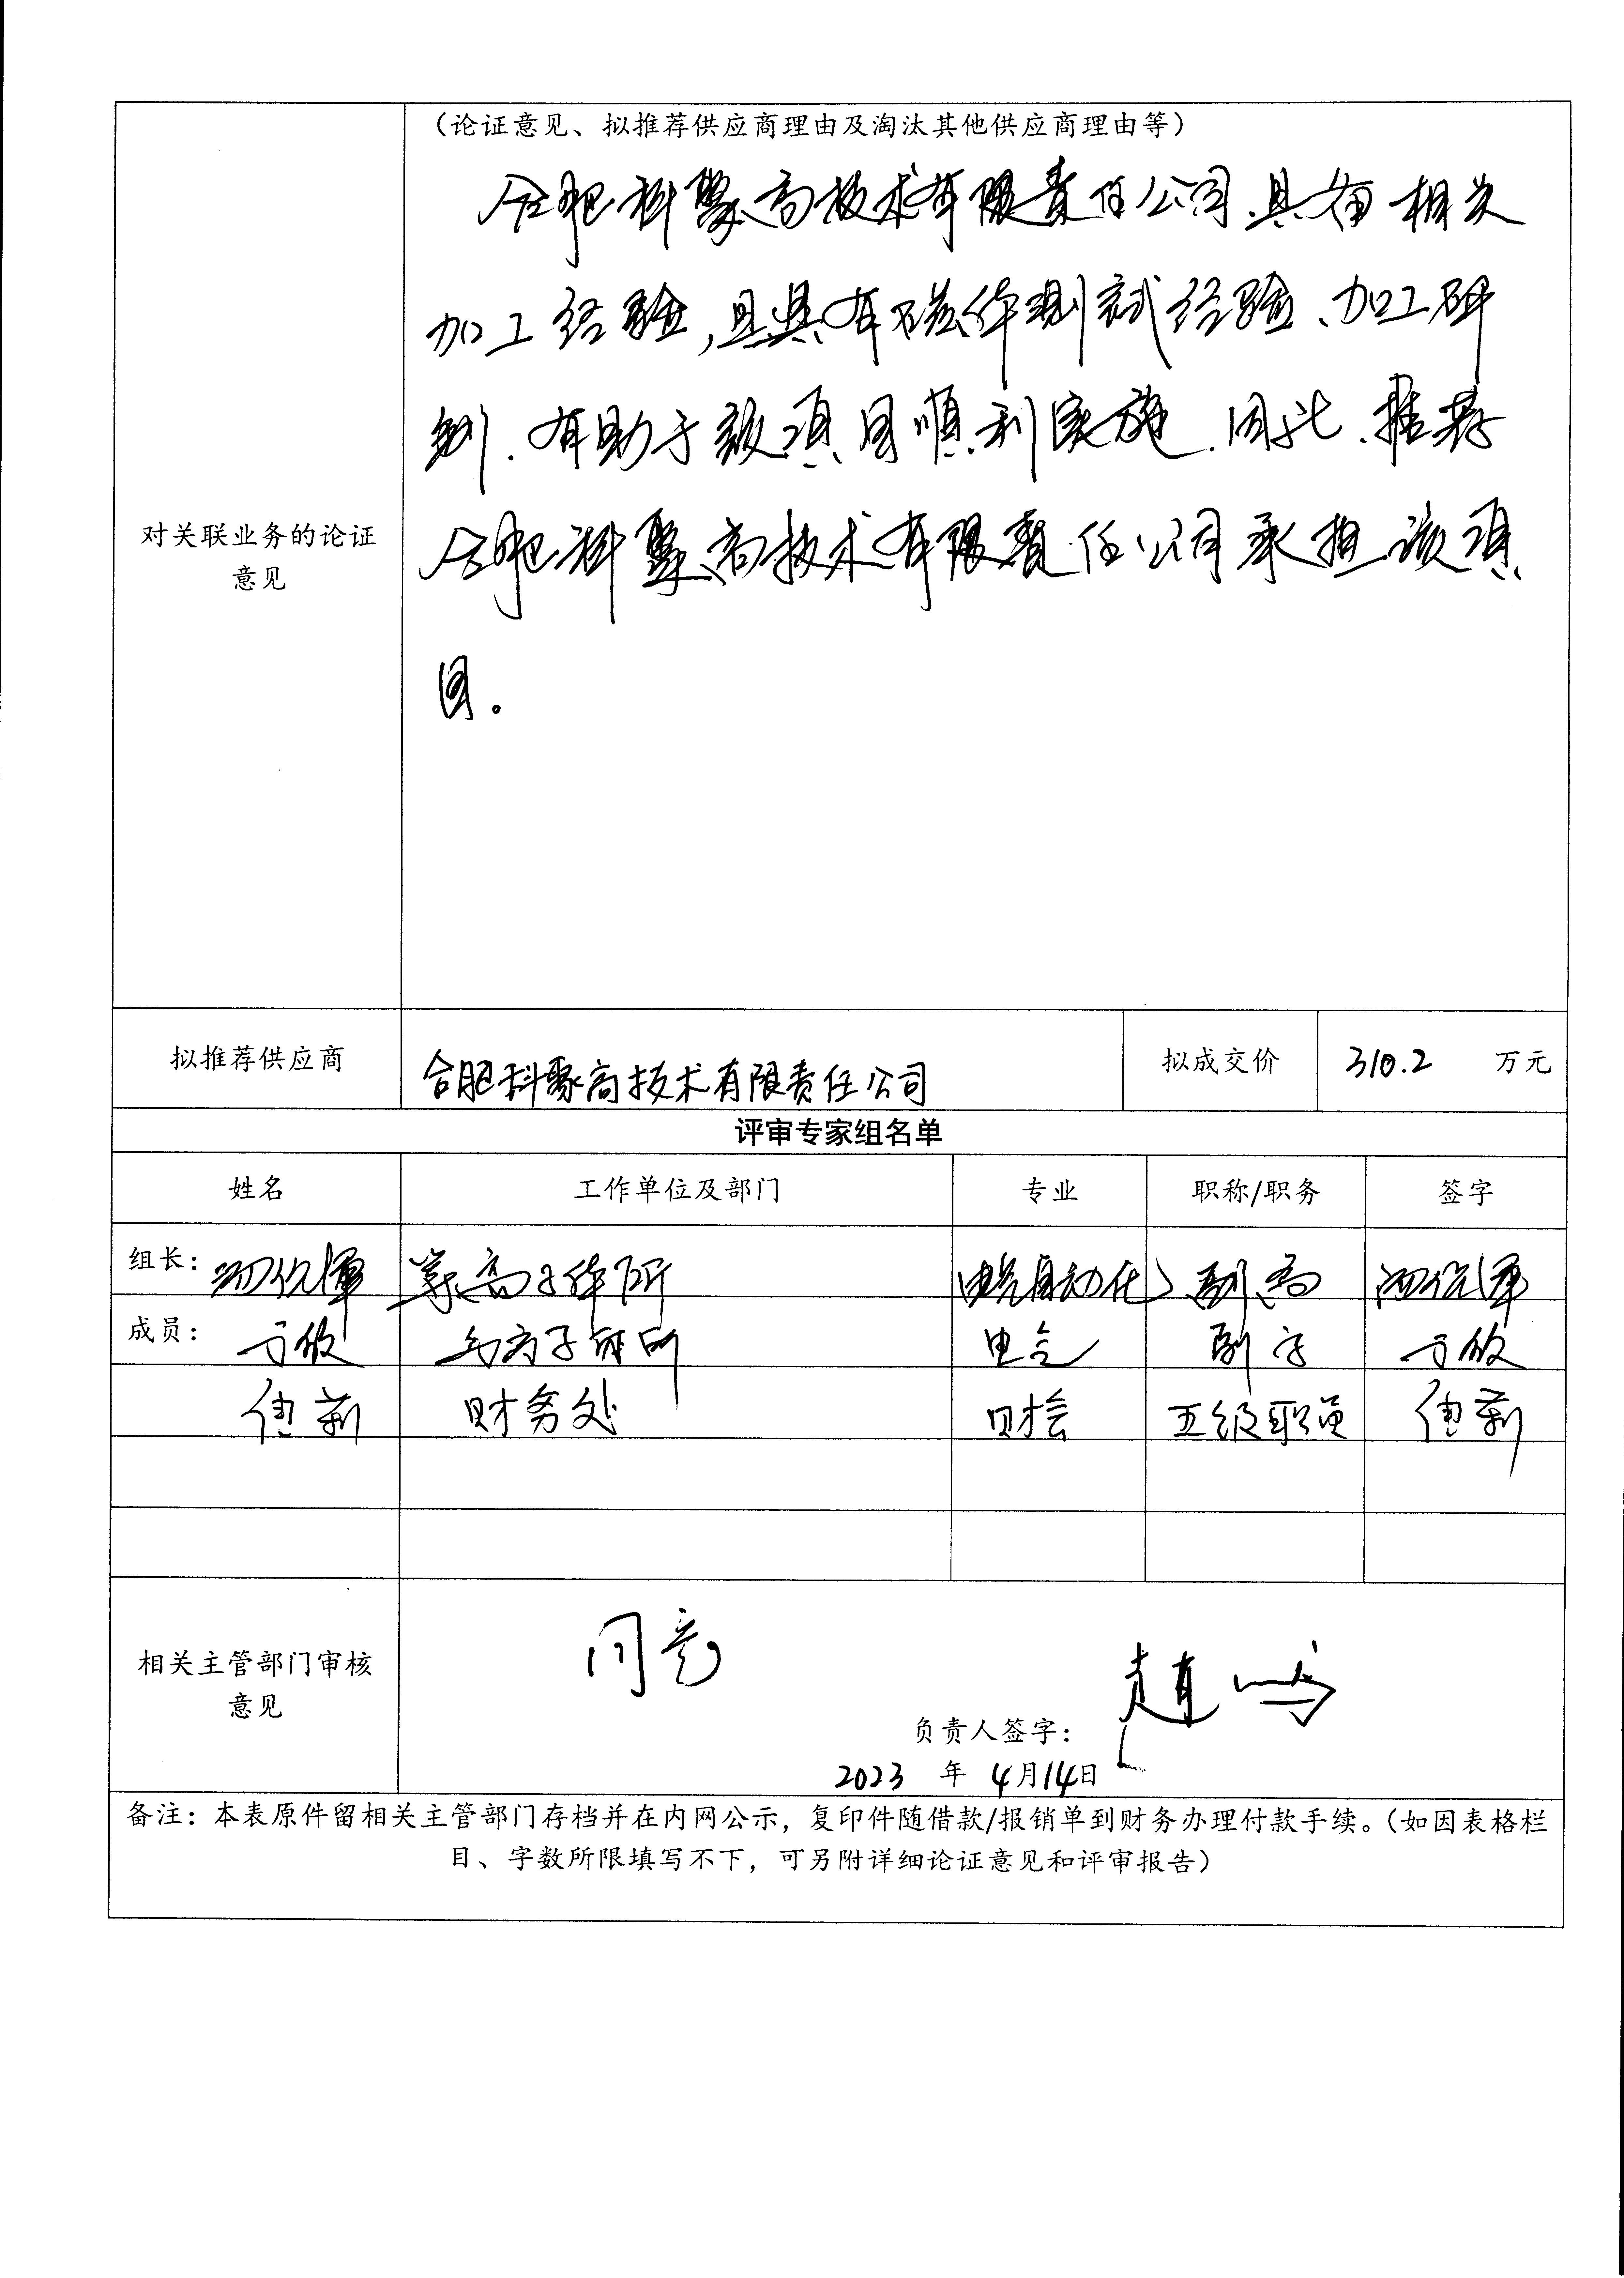 （论证意见、拟推荐供应商理由及淘汰其他供应商理由等）
合肥科聚高技术有限责任公司具有相关
加工经验，且具有磁体测试经验、加工
有助于该项目顺利实施.因此、推荐
合肥科聚高技术有限责任公司承担该项
目。
对关联业务的论证
意见
拟推荐供应商 合肥科聚高技术有限责任公司 拟成交价 310.2 万元
评审专家组名单
姓名 工作单位及部门 专业 职称/职务 签字
组长： 等离子体所 电气自动化 副高
成员： 等离子体所 电气 副高
财务处 财会 五级职员
相关主管部门审核
意见
同意
负责人签字：
2023 年 4月14日
备注：本表原件留相关主管部门存档并在内网公示，复印件随借款/报销单到财务办理付款手续。（如因表格栏
目、字数所限填写不下，可另附详细论证意见和评审报告）